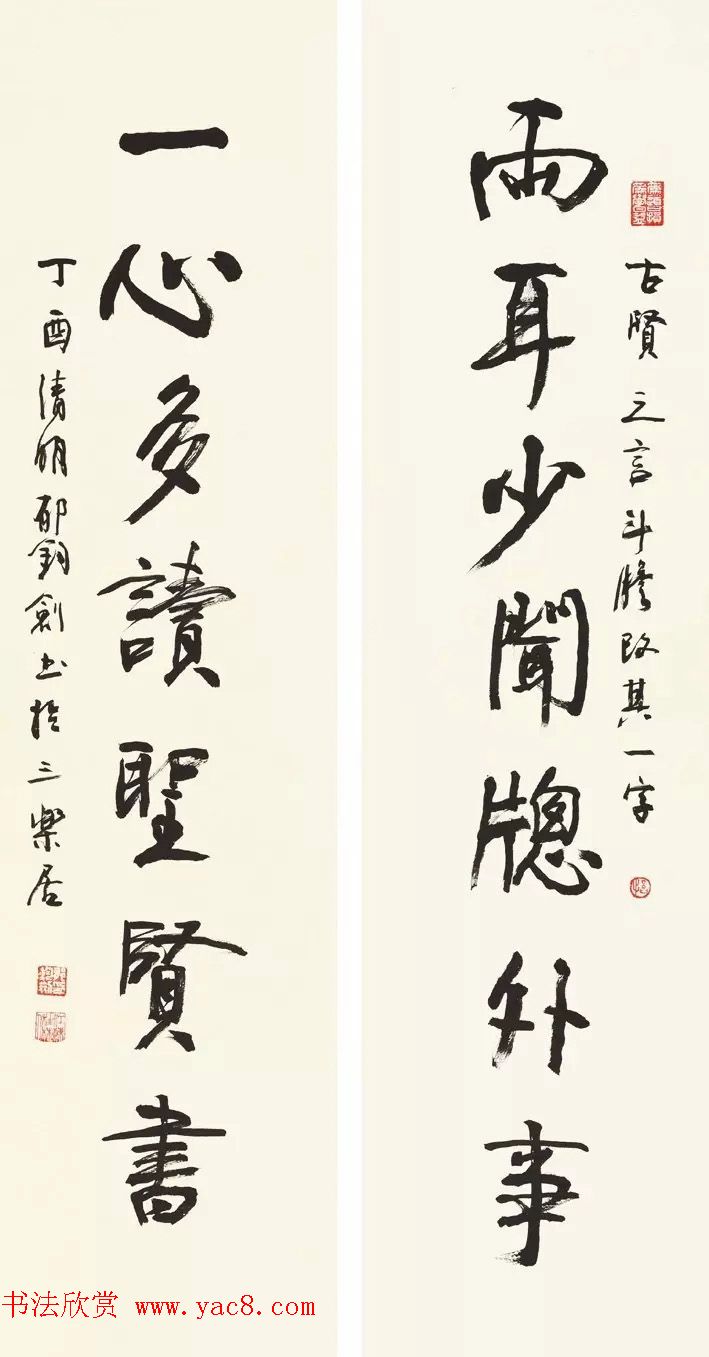 古賢之言斗膽改其一字
兩耳少聞牕外事
一心多讀聖賢書
丁酉清明郁鈞劍書於三樂居
书法欣赏 www.yac8.com